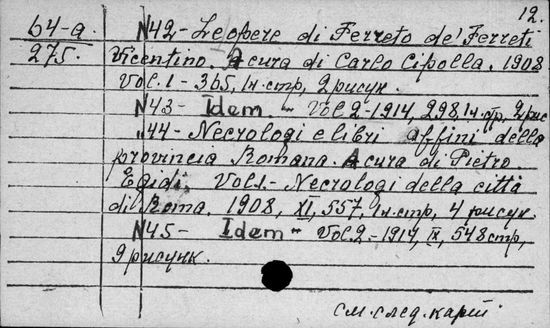 12.
64-а. N42- Le opere di Ferreto de' Ferreti
275. Vicentino. A cura di Carlo Cipolla. 1908
Vol. 1 - 365, 1н.стр, 2 рисук.
N43- Idem. - Vol 2-1914, 298, 1н.стр, 2 рис
„44- Necrologi e libri affini della
provincia Romana. A cura di Pietro
Egidi. Vol.1.- Necrologi della città
di Roma. 1908, XI, 557, 1н.стр, 4 рисук.
N45- Idem - Vol.2-1914, IX, 548 стр,
9 рисунк.
см. след. карт